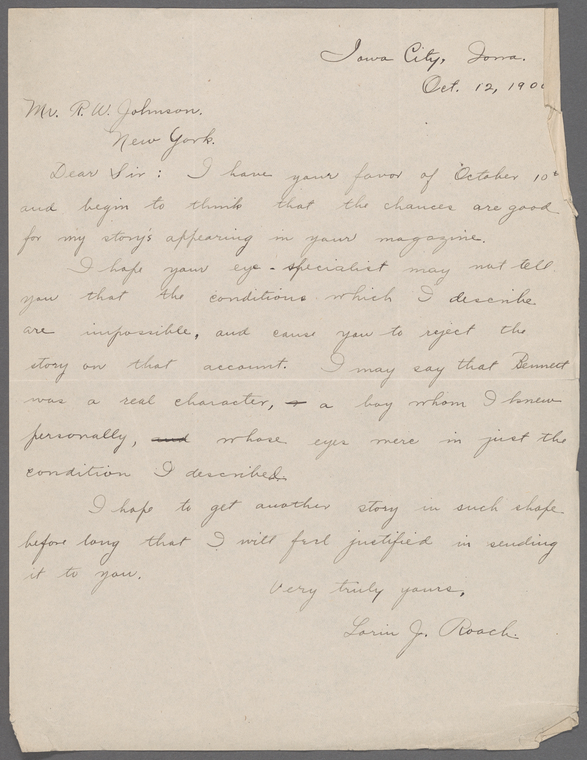 Iowa City, Iowa.
Oct. 12, 190
Mr. R. W. Johnson.
New York.
Dear Sir: I have your favor of October 10th
and begin to think that the chances are good
for my story's appearing in your magazine.
I hope your eye-specialist may not tell
you that the conditions which I describe
are impossible, and cause you to reject the
story on that account. I may say that Bennett
was a real character, a a boy whom I knew
personally, and whose eyes were in just the
condition I described.
I hope to get another story in such shape
before long that I will feel justified in sending
it to you.
Very truly yours,
Lorin J. Roach.